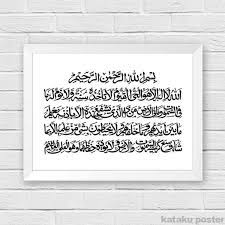 بِسْمِ اللَّهِ الرَّحْمَنِ الرَّحِيمِ
اللَّهُ لَا إِلَهَ إِلَّا هُوَ الْحَيُّ الْقَيُّومُ لَا تَأْخُذُهُ سِنَةٌ وَلَا نَوْمٌ لَهُ مَا
فِي السَّمَوَاتِ وَمَا فِي الْأَرْضِ مَنْ ذَا الَّذِي يَشْفَعُ عِنْدَهُ إِلَّا بِإِذْنِهِ يَعْلَمُ
مَا بَيْنَ أَيْدِيهِمْ وَمَا خَلْفَهُمْ وَلَا يُحِيطُونَ بِشَيْءٍ مِنْ عِلْمِهِ إِلَّا بِمَا
شَاءَ وَسِعَ كُرْسِيُّهُ السَّمَوَاتِ وَالْأَرْضَ وَلَا يَئُودُهُ حِفْظُهُمَا وَهُوَ الْعَلِيُّ الْعَظِيمُ
kataku poster